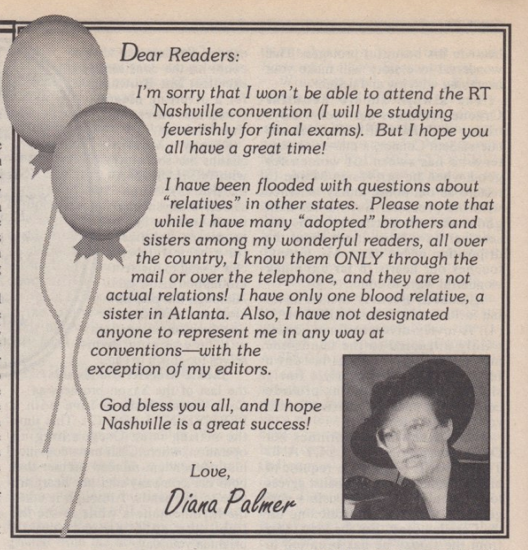 Dear Readers:
I'm sorry that I won't be able to attend the RT
Nashville convention (I will be studying
feverishly for final exams). But I hope you
all have a great time!
I have been flooded with questions about
"relatives" in other states. Please note that
while I have many "adopted" brothers and
sisters among my wonderful readers, all over
the country, I know them ONLY through the
mail or over the telephone, and they are not
actual relations! I have only one blood relative, a
sister in Atlanta. Also, I have not designated
anyone to represent me in any way at
conventions—with the
exception of my editors.
God bless you all, and I hope
Nashville is a great success!
Love,
Diana Palmer